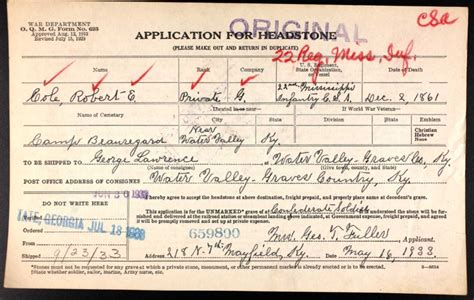 WAR DEPARTMENT
O. Q. M. G. Form No. 623
Approved Aug. 12, 1913
Revised July 15, 1929
ORIGINAL
CSA
APPLICATION FOR HEADSTONE
(PLEASE MAKE OUT AND RETURN IN DUPLICATE)
22 Reg. Miss. Inf.
Name
Rank
Company
Cole, Robert E.
Private
G.
22nd Mississippi
Infantry C.S.A.
Dec. 2, 1861
Name of Cemetery
World War Veteran
Christian
Hebrew
None
Camp Beauregard
Near
Water Valley
Ky.
TO BE SHIPPED TO
George Lawrence
Water Valley-Graves Co., Ky.
POST OFFICE ADDRESS OF CONSIGNEE
Water Valley-Graves Country, Ky.
JUN 30 1933
I hereby agree to accept the headstone at above destination, freight prepaid, and properly place same
This application is for the UNMARKED grave of
Confederate Soldier
GEORGIA JUL 18 1933
659890
Mrs. Geo. T. Fuller
9/23/33
218 N. 7th Mayfield, Ky.
May 16, 1933